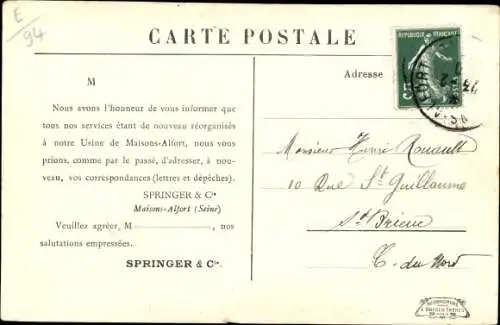 E
94
CARTE POSTALE
M
Nous avons l'honneur de vous informer que
tous nos services étant de nouveau réorganisés
à notre Usine de Maisons-Alfort, nous vous
prions, comme par le passé, d'adresser, à nou-
veau, vos correspondances (lettres et dépêches).
SPRINGER & Cie
Maisons-Alfort (Seine)
Veuillez agréer, M, nos
salutations empressées.
SPRINGER & Cie.
REPUBLIQUE FRANÇAISE
5
Adresse
Monsieur Henri Rouault
10 Rue St Guillaume
St Brieuc
C. du Nord